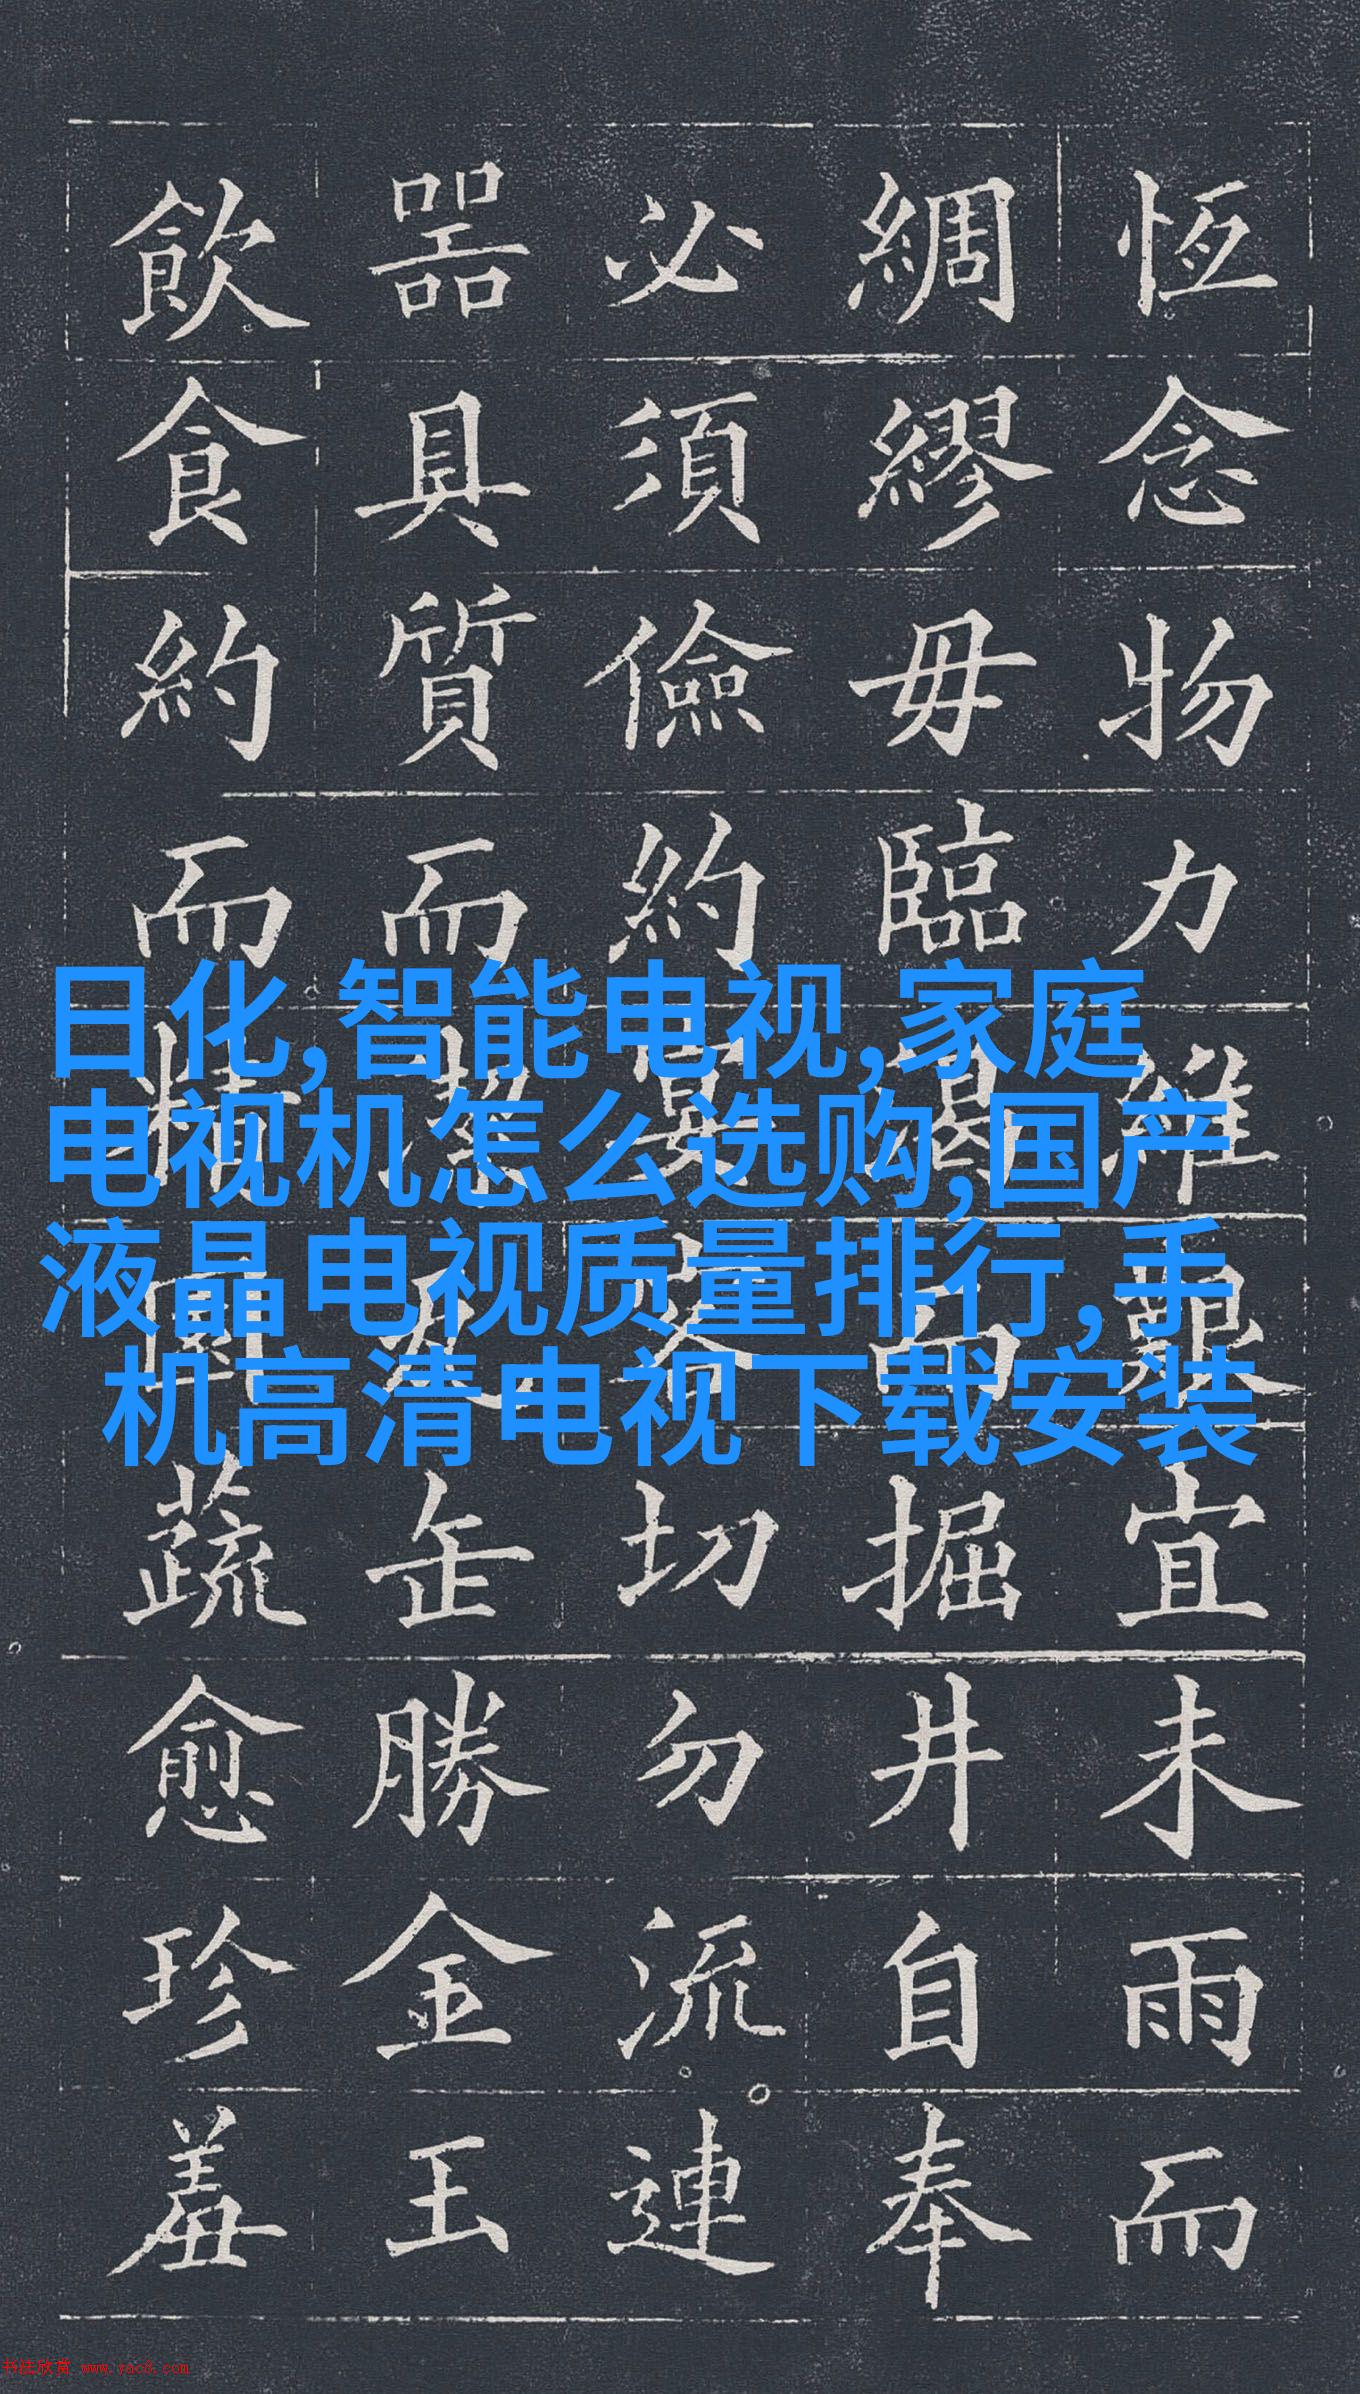 恆念物力維艱宜未雨而
綢繆毋臨渴而掘井自奉
必須儉約宴客切勿流連
噐具質而潔瓦缶勝金玉
飲食約而精園蔬愈珍羞
日化,智能电视,家庭
电视机怎么选购,国产
液晶电视质量排行,手
机高清电视下载安装
书法欣赏 www.yac8.com